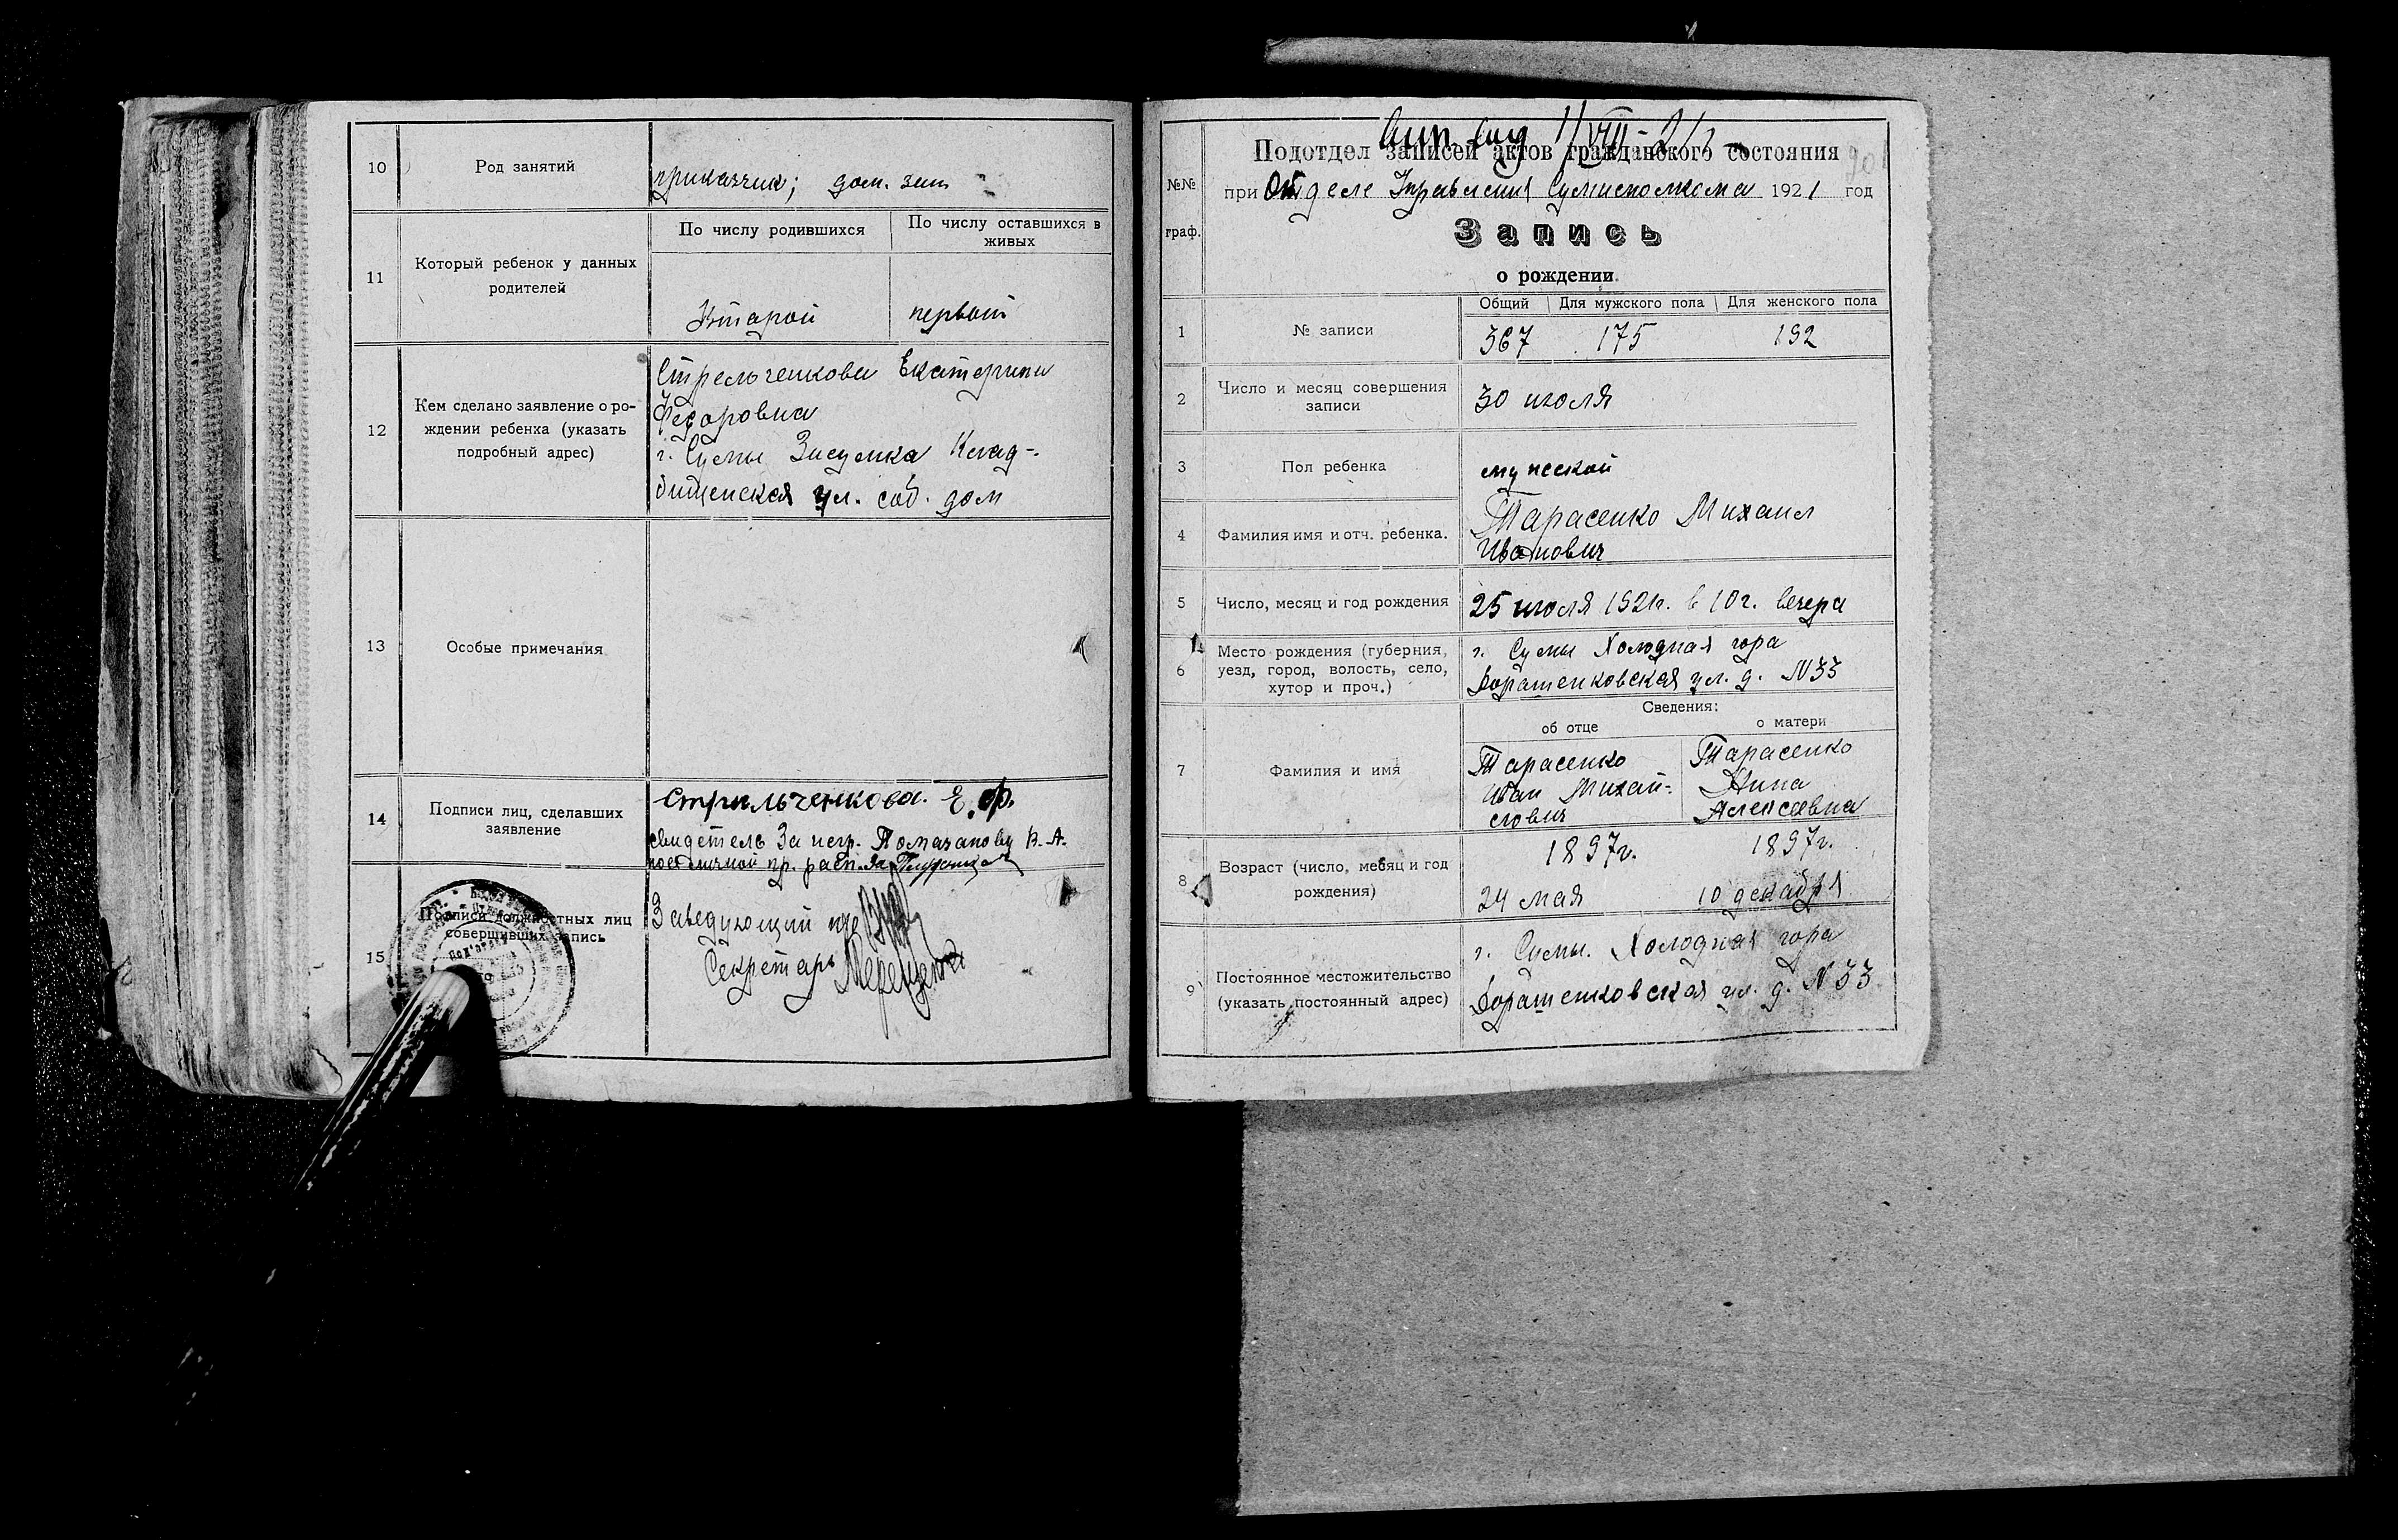 10
Род занятий
приказчик; дом. зан
11
Который ребенок у данных
родителей
По числу родившихся
По числу оставшихся в
живых
Второй
первый
12
Кем сделано заявление о ро-
ждении ребенха (указать
подробный адрес)
Стрельченкова Екатерина
Федоровна
г. Сумы Засумка Клад-
бищенская ул. соб. дом
13
Особые примечания
14
Подписи лиц, сделавших
заявление
Стрильченкова. Е. Ф.
свидетель За негр. В. А.
пр. расп. За
15
Подписи должностных лиц
совершивших запись
Заведующий
Секретарь
№№
граф.
Подотдел записей актов гражданского состояния
при Отделе Управления Сумисполкома 1921 год
Запись
о рождении.
1
№ записи
Общий
Для мужского пола
Для женского пола
367
175
192
2
Число и месяц совершения
записи
30 июля
3
Пол ребенка
мужской
4
Фамилия имя и отч. ребенка.
Тарасенко Михаил
Иванович
5
Число, месяц и год рождения
25 июля 1921г. в 10 ч. вечера
6
Место рождения (губерния,
уезд, город, волость, село,
хутор и проч.)
г. Сумы Холодная гора
Дорашенковская ул. д. №33
7
Фамилия и имя
Сведения:
об отце
о матери
Тарасенко
Иван Михай-
лович
Тарасенко
Нина
Алексеевна
8
Возраст (число, месяц и год
рождения)
1897г.
24 мая
1897г.
10 декабря
9
Постоянное местожительство
(указать постоянный адрес)
г. Сумы. Холодная гора
Дорашенковская ул. д. №33